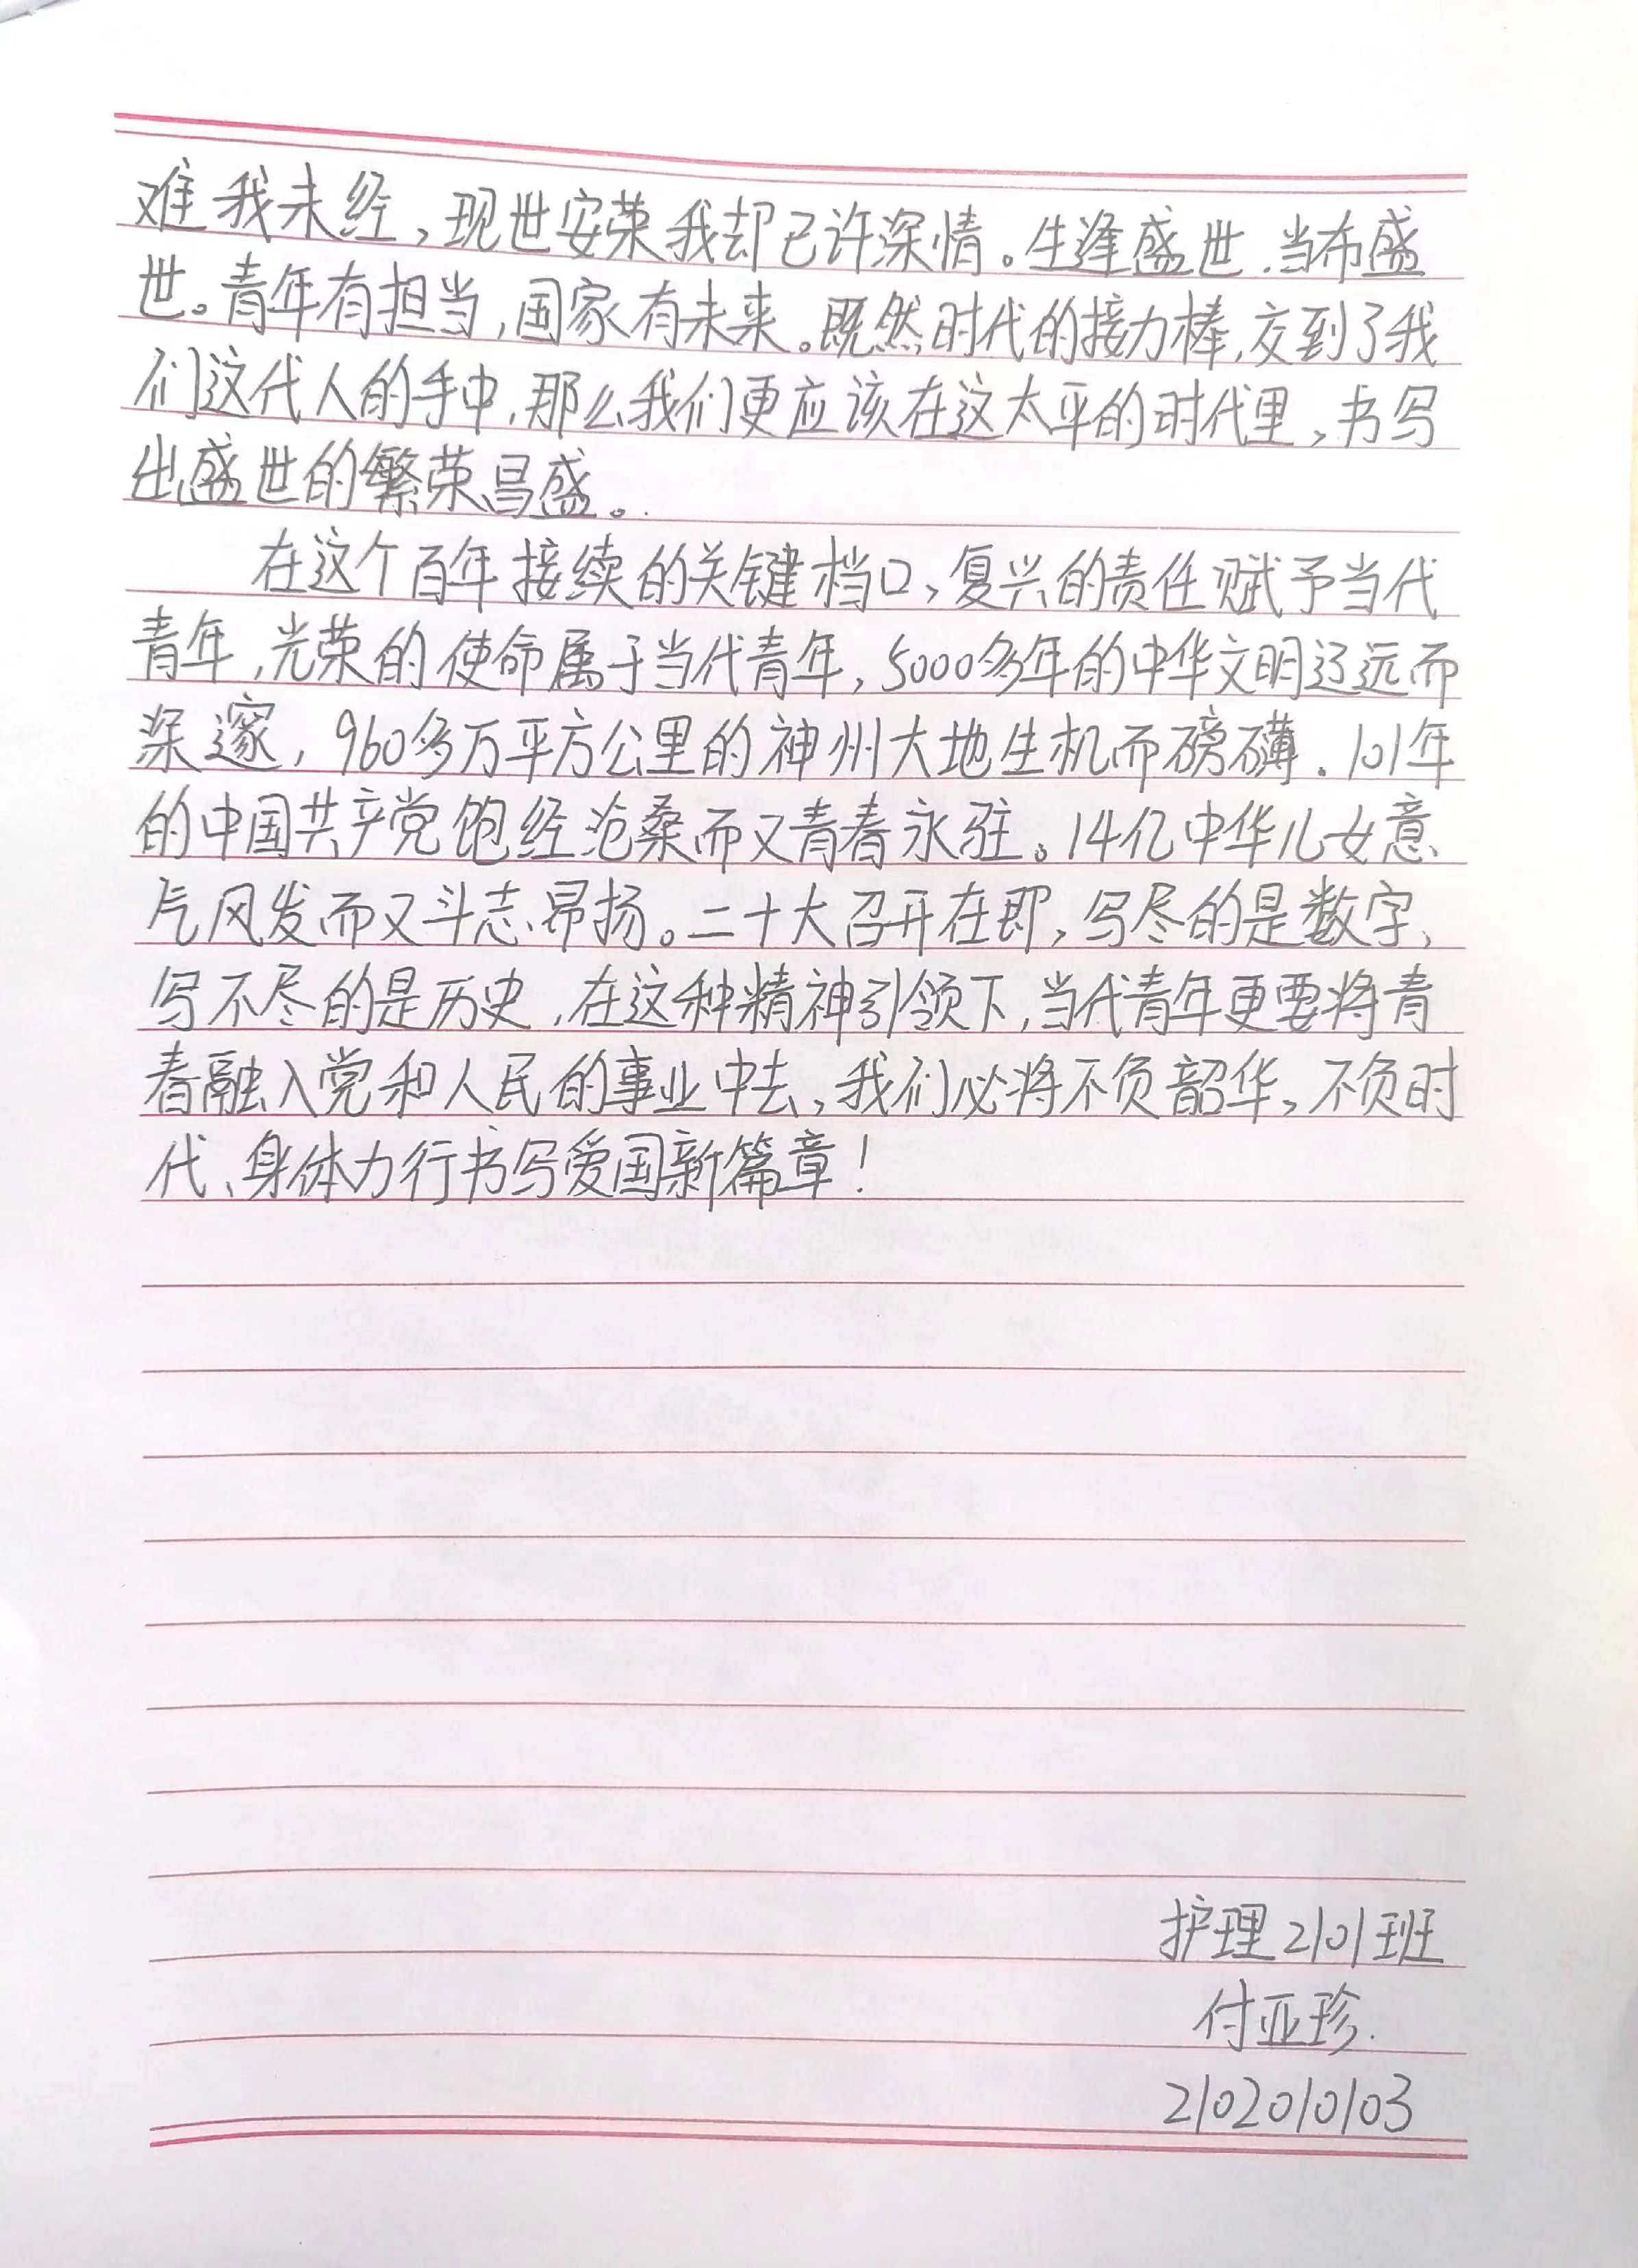 难我未经，现世安荣我却已许深情。生逢盛世，当布盛
世。青年有担当，国家有未来。既然时代的接力棒，交到了我
们这代人的手中，那么我们更应该在这太平的时代里，书写
出盛世的繁荣昌盛。
在这个百年接续的关键档口，复兴的责任赋予当代
青年，光荣的使命属于当代青年，5000多年的中华文明辽远而
深邃，960多万平方公里的神州大地生机而磅礴．101年
的中国共产党饱经沧桑而又青春永驻。14亿中华儿女意
气风发而又斗志昂扬。二十大召开在即，写尽的是数字、
写不尽的是历史，在这种精神引领下，当代青年更要将青
春融入党和人民的事业中去，我们必将不负韶华，不负时
代、身体力行书写爱国新篇章！
护理2101班
付亚珍.
2102010103